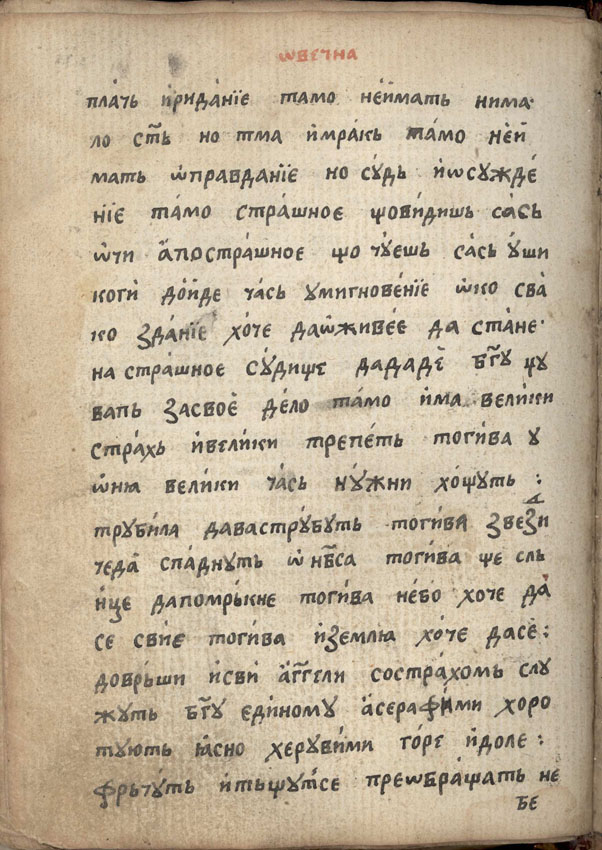 ѡвечна
плачь ѝриданїе тамо неѝмать нима
ло ст҃ь но тма ѝмракь тамо неѝ
мать ѡправданїе но судь ѝѡсужде
нїе тамо страшное щовидишь сась
ѡчи апострашное що чуешь сась уши
коги дойде чась умигновенїе ѡко сва
ко зданїе хоче даѡживее да стане
на страшное судище дададе бг҃у щу
вапь засвое дело тамо ѝма велики
страхь ѝвелики трепеть тогива у
ѡния велики чась нужни хощуть :
трубила даваструбуть тогива звезди
чеда спаднуть ѡ нб҃са тогива ще сль
нце дапомрькне тогива небо хоче да
се свие тогива ѝземлю хоче дасе :
доврьши ѝсви агг҃ели сострахомь слу
жуть бг҃у единому асерафими хоро
тують ꙗсно херувими горе ѝдоле :
фрьчуть ѝтьщутсе преѡбращать не
бе